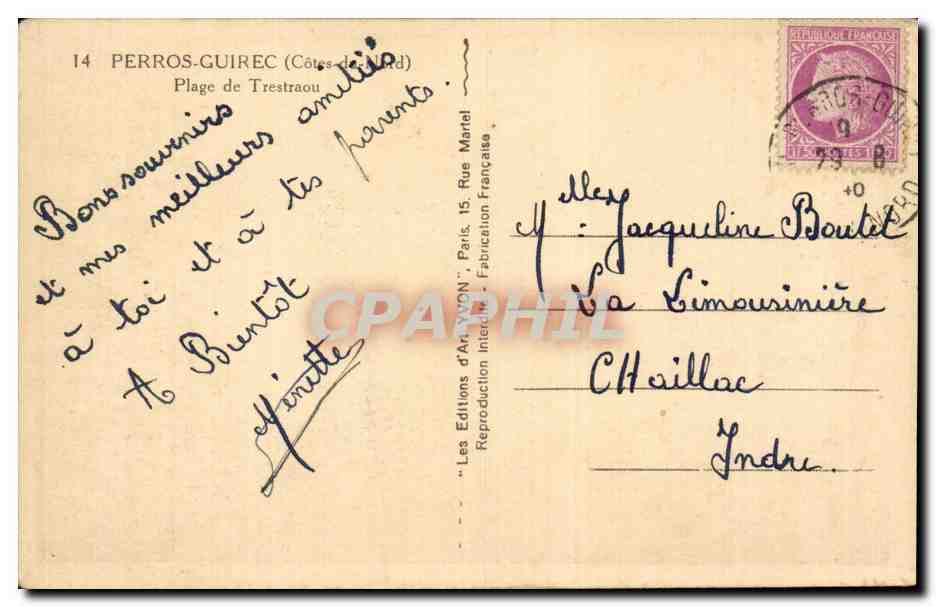 14 PERROS-GUIREC (Côtes-du-Nord)
Plage de Trestraou
Bons souvenirs
et mes meilleurs amitiés
à toi et à tes parents.
A Bientôt
"Les Editions d'Art YVON", Paris, 15, Rue Martel
Reproduction Interdite - Fabrication Française
REPUBLIQUE FRANÇAISE
9
29 8
NORD
Melle : Jacqueline Boutet
La Limousinière
CHaillac
Indre.
CPAPHIL